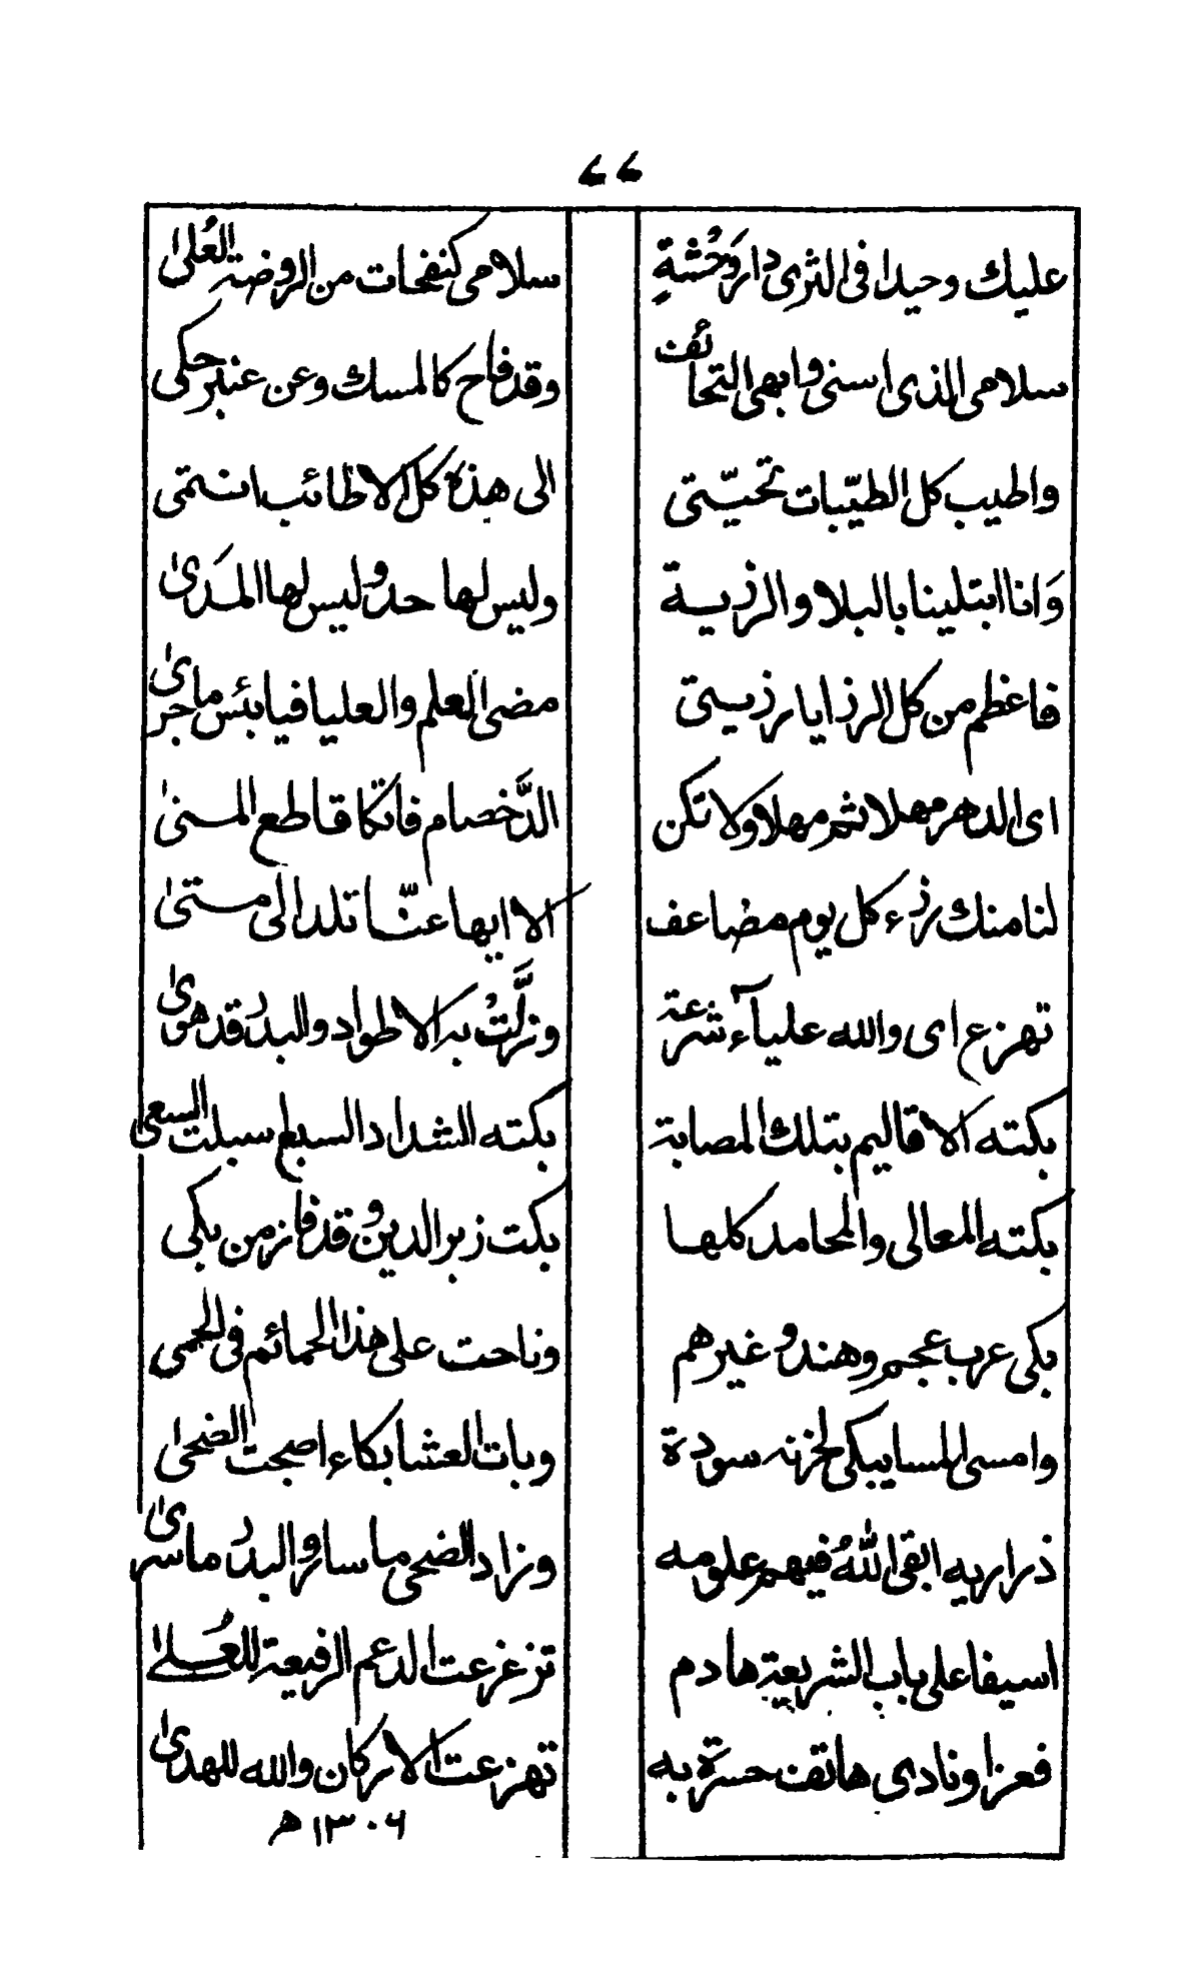 ۶۶
عليك وحيدا فى الثرى دار وَحُشةٍ سلامى كنفحات من الروضة العُلىٰ
سلامى الذى اسنى وابهى التحائف وقد فاح كالمسك وعن عنبر حكى
واطيب كل الطيّبات تحيـّـتى الى هذه كل الاطائب انـتمى
وَانا ابتلينا بالبلا و الرزيـة وليس لها حد وليس لها المَدىٰ
فاعظم من كل الرزايا رزيـتى مضى العلم والعليا فيا بئس ما جرىٰ
اى الدهر مهلا ثم مهلا ولا تكن الدَّ خصام فاتكا قاطع المـنىٰ
لنا منك رزء كل يوم مضاعف الا ايها عنّـا تلد الى مـتىٰ
تهزع اى والله علياآء شرعة وزلَّتْ به الاطواد والبدر قد هوىٰ
بكته الاقاليم بتلك المصابة بكته الشداد السبع سبلت السعى
بكته المعالى والمحامد كلهـا بكت زبر الدين وقد فاز من بكى
بكى عرب عجم وهند و غيرهم وناحت على هذا الحمائم فى الحمى
وامسى المسا يبكى لحزنه سودة وبات العشا بكاء اصبحت الضحىٰ
ذراريه ابقى اللهُ فيهم علومه وزاد الضحى ما سار والبدر ما سرىٰ
اسيفا على باب الشريعة هادم تزعزعت الدعم الرفيعة للعُـلىٰ
فعزا ونادى هاتف حسرة به تهزعت الاركان والله للهدىٰ
۱۳۰۶ ھ